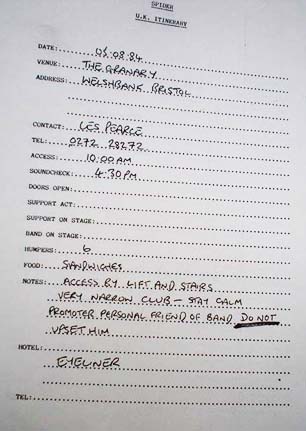 SPIDER
U.K. ITINERARY
DATE: 05.08.84
VENUE: THE GRANARY
ADDRESS: WELSHBANK BRISTOL
CONTACT: LES PEARCE
TEL: 0272 28272
ACCESS: 10.00AM
SOUNDCHECK: 4.30PM
DOORS OPEN:
SUPPORT ACT:
SUPPORT ON STAGE:
BAND ON STAGE:
HUMPERS: 6
FOOD: SANDWICHES
NOTES: ACCESS BY LIFT AND STAIRS
VERY NARROW CLUB - STAY CALM
PROMOTER PERSONAL FRIEND OF BAND DO NOT
UPSET HIM
HOTEL:
EYELINER
TEL: